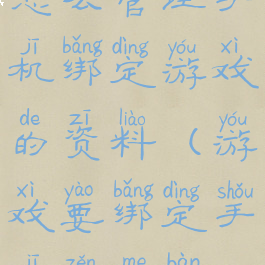 jī bǎng dìng yóu xì
机绑定游戏
de zī liào yóu
的资料（游
xì yào bǎng dìng shǒu
戏要绑定手
jī zěn me bàn